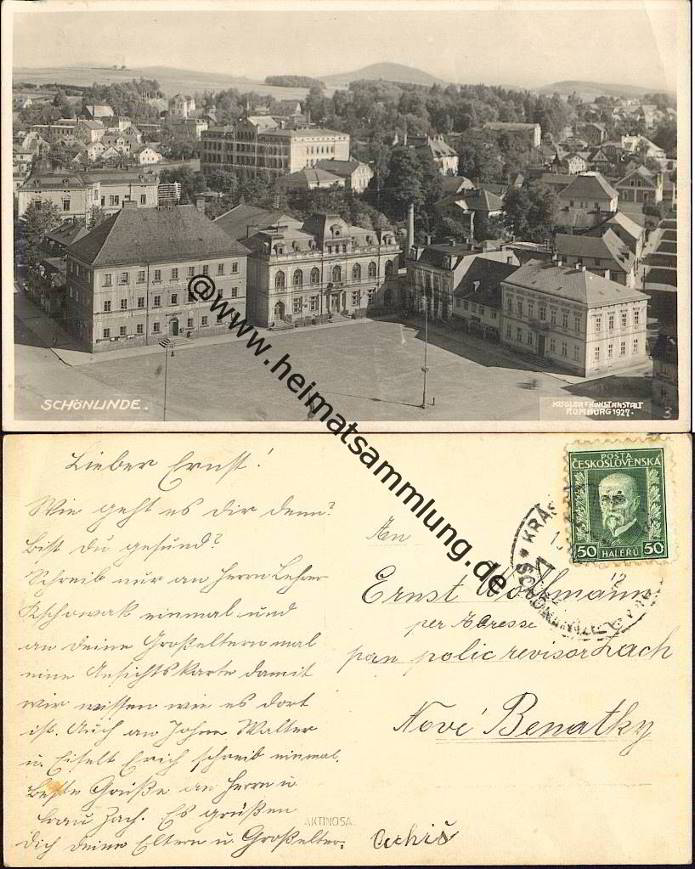 SCHÖNLINDE.
KUNSTANSTALT
RUMBURG 1927.
3
@www.heimatsammlung.de
Lieber Ernst!
Wie geht es dir denn?
Bist du gesund?
Schreib nur an Herrn Lehrer
einmal und
an deine Großeltern mal
eine Ansichtskarte damit
wir wissen wie es dort
ist. Auch an John Walter
u. Eiselt Erich schreib einmal.
Beste Grüße an Herrn u
Frau Zach. Es grüßen
dich deine Eltern u Großelter.
POSTA
ČESKOSLOVENSKÁ
50 HALÉŘŮ 50
An
Ernst
per Adresse
pan polic revisor Zach
Nové Benatky
AKTINOSA